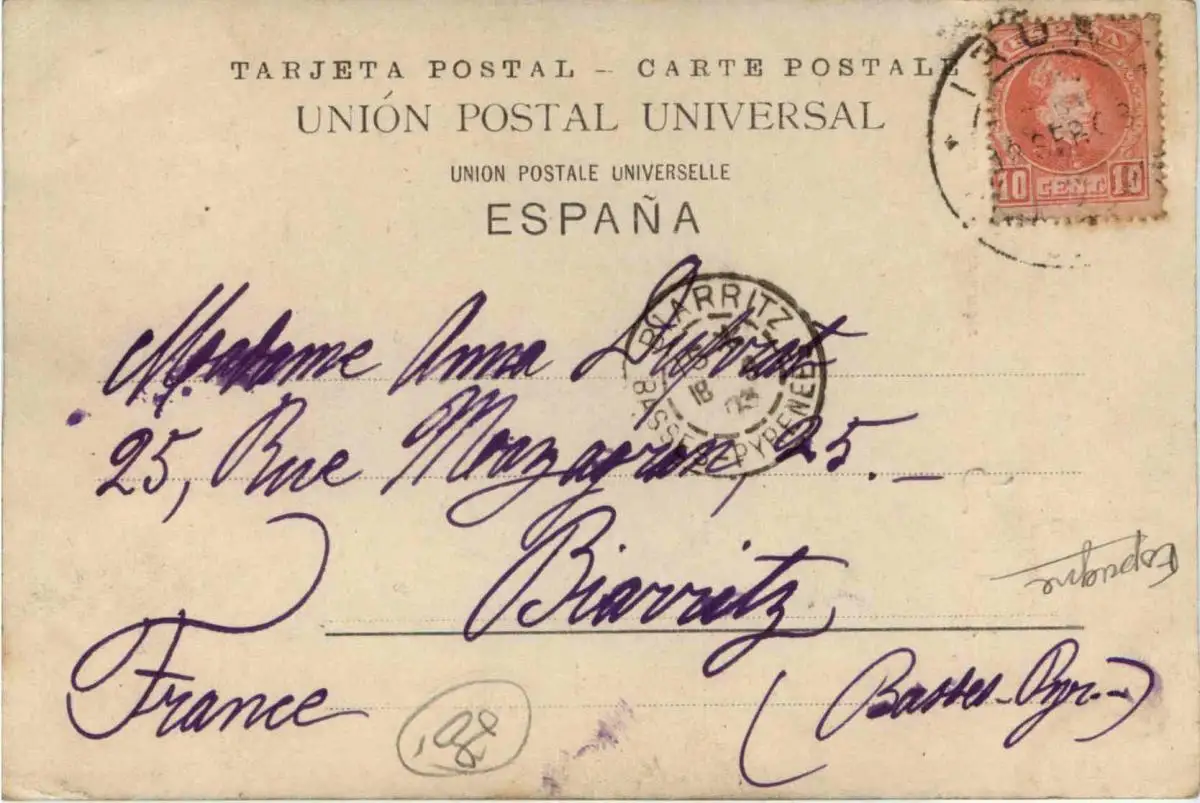 TARJETA POSTAL – CARTE POSTALE
UNIÓN POSTAL UNIVERSAL
UNION POSTALE UNIVERSELLE
ESPAÑA
IRUN
ESPAÑA
10 CENT 10
BIARRITZ
18
BASSES-PYRENEES
Madame Anna Duprat
25, Rue Mazagran, 25.–
Biarritz
France
(Basses-Pyr.-)
Espagne